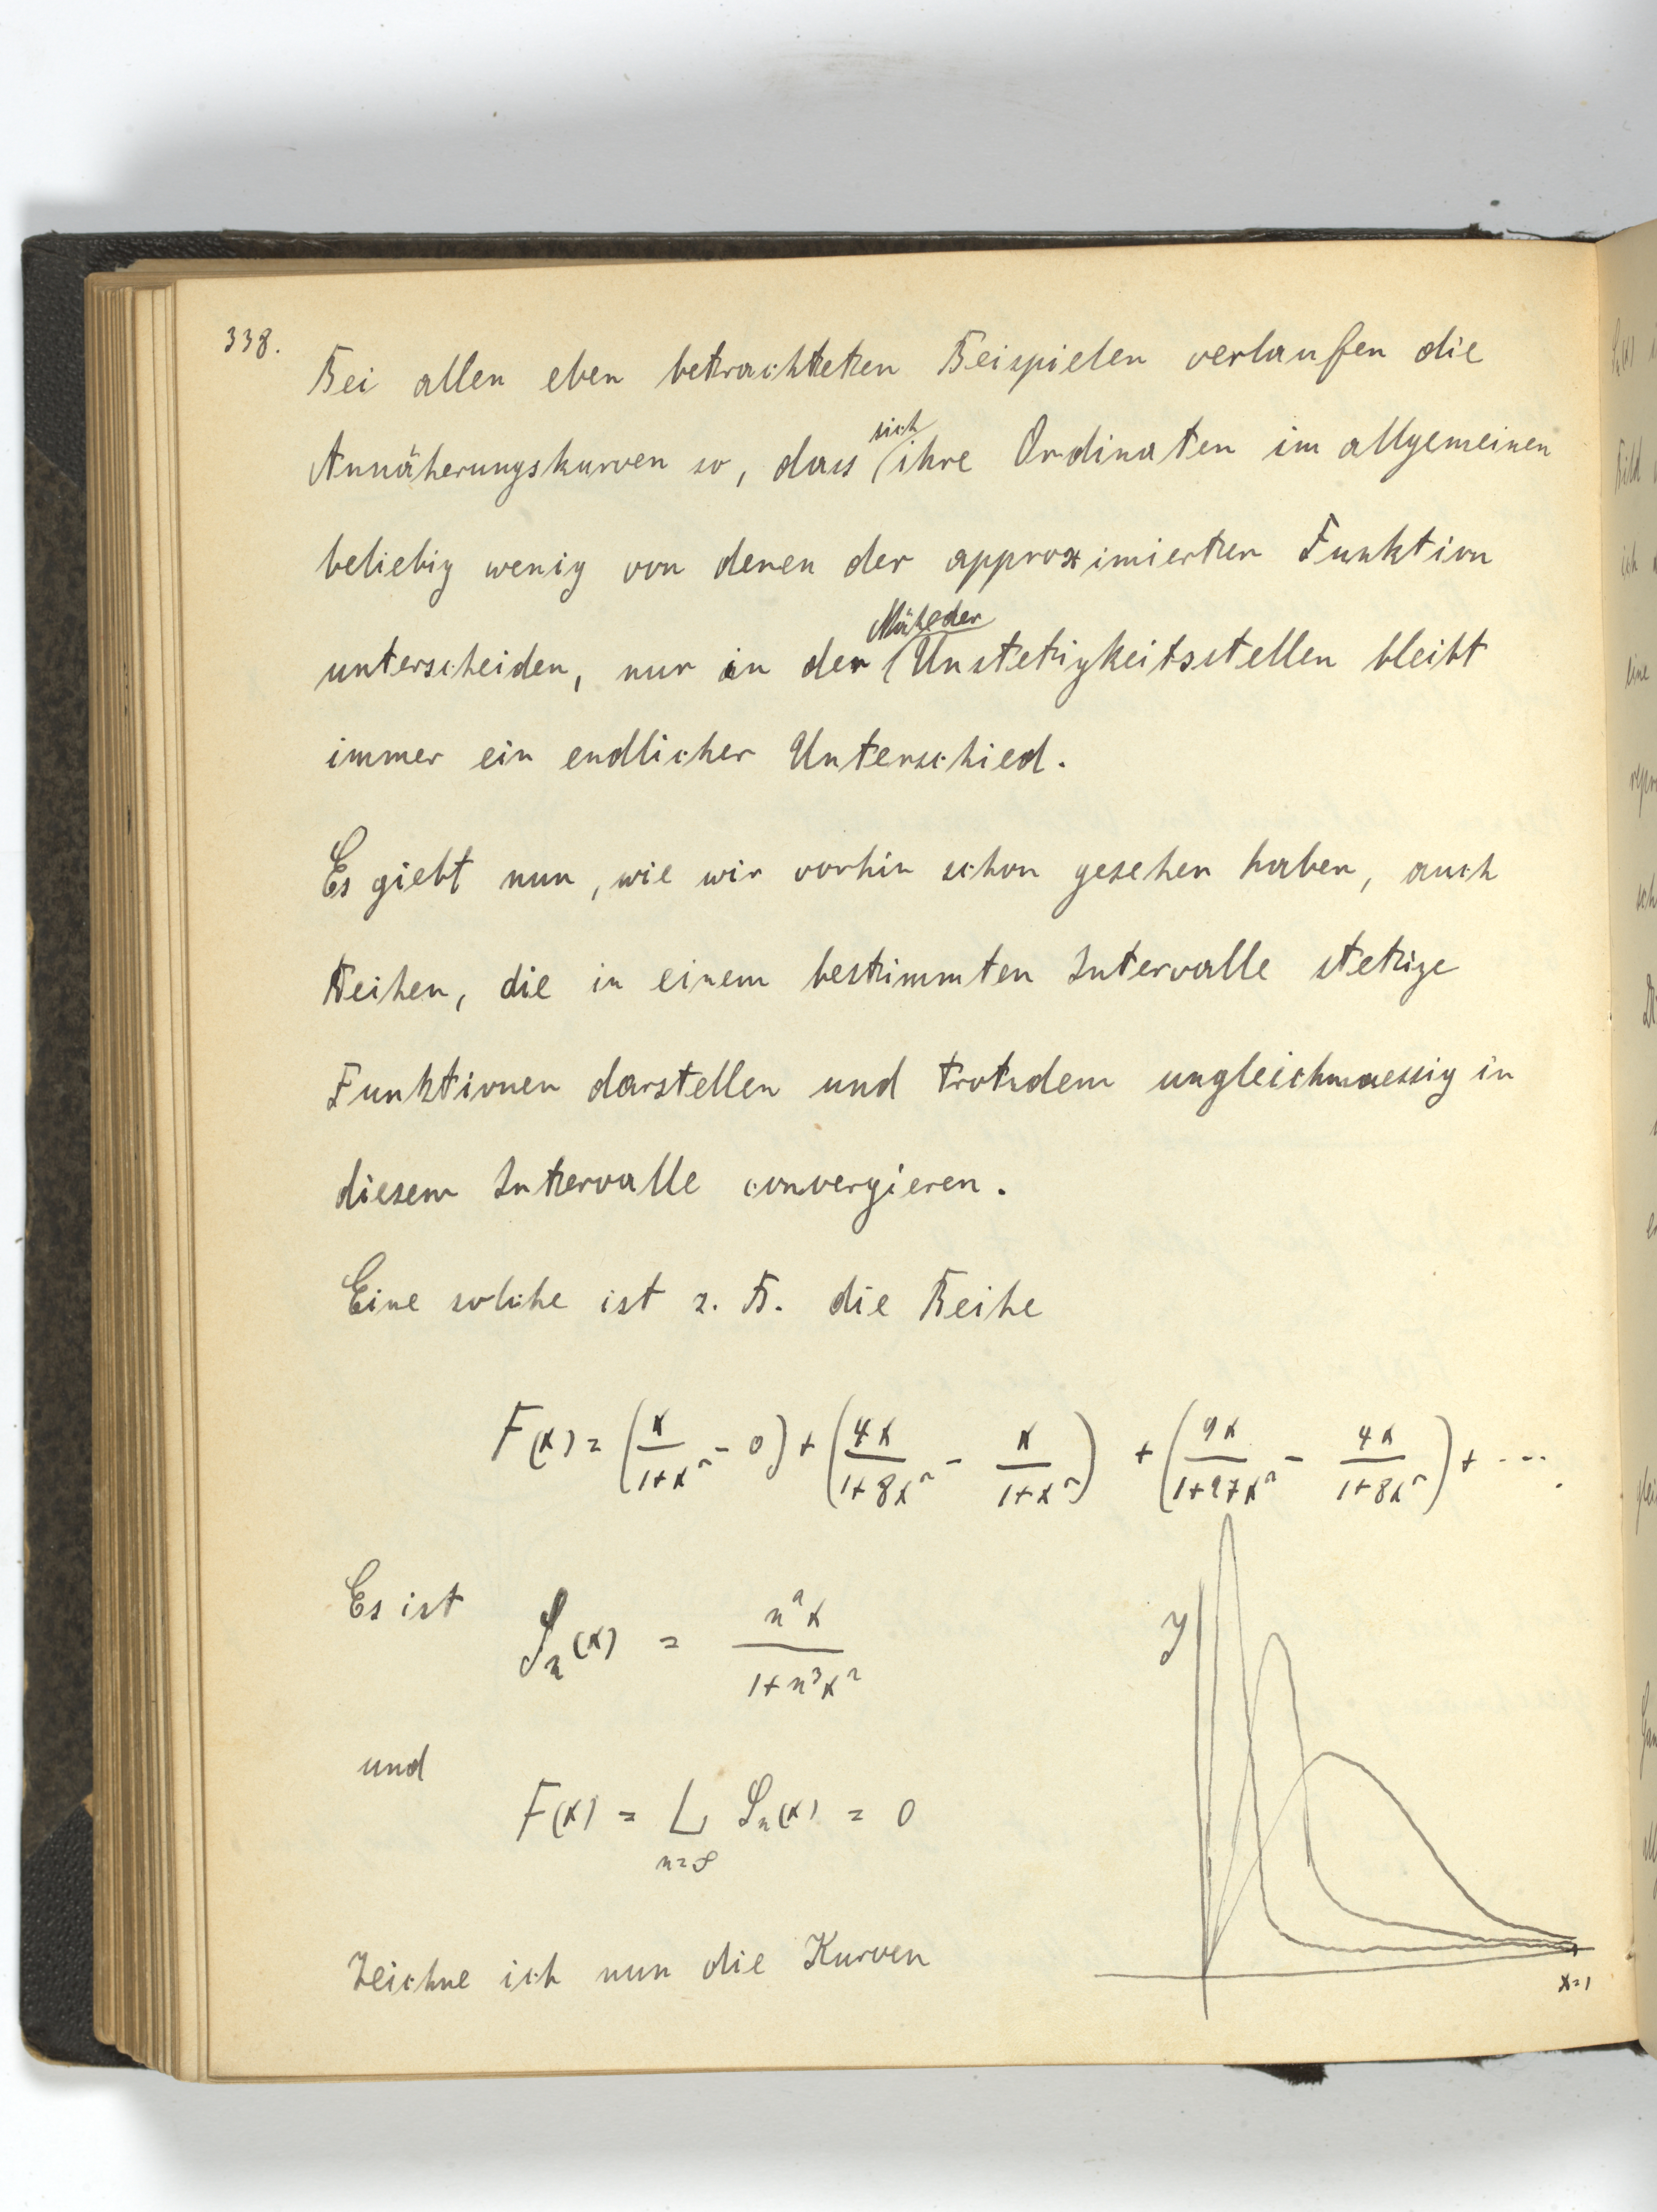 338.
Bei allen eben betrachteten Beispielen verlaufen die
Annäherungskurven so, dass sich ihre Ordinaten im allgemeinen
beliebig wenig von denen der approximierten Funktion
unterscheiden, nur in der Nähe der Unstetigkeitsstellen bleibt
immer ein endlicher Unterschied.
Es giebt nun, wie wir vorhin schon gesehen haben, auch
Reihen, die in einem bestimmten Intervalle stetige
Funktionen darstellen und trotzdem ungleichmaessig in
diesem Intervalle convergieren.
Eine solche ist z. B. die Reihe
F(x) = (x/(1+x²) - 0) + (4x/(1+8x²) - x/(1+x²)) + (9x/(1+27x²) - 4x/(1+8x²)) + ....
Es ist Sₙ(x) = n²x/(1+n³x²)
y
und
F(x) = L Sₙ(x) = 0
n=∞
Zeichne ich nun die Kurven
x=1